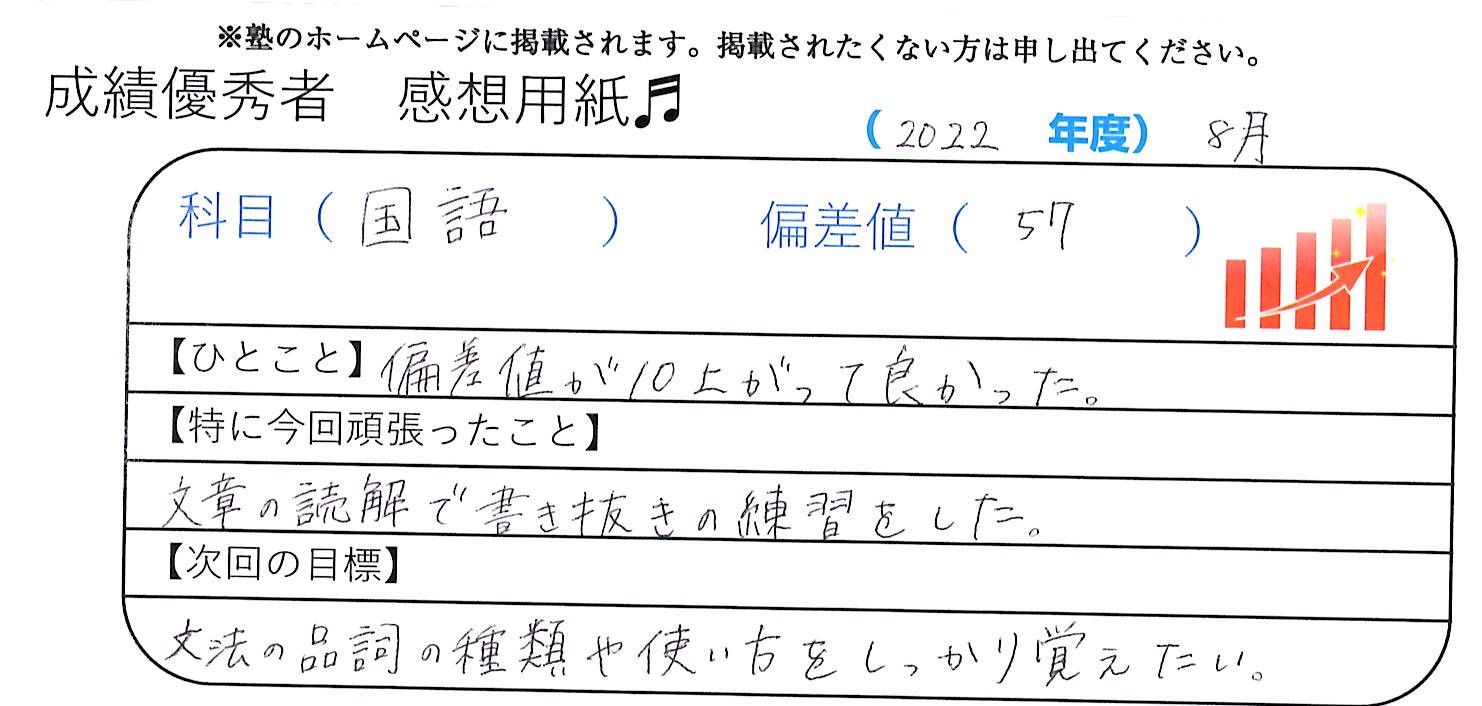 ※塾のホームページに掲載されます。掲載されたくない方は申し出てください。
成績優秀者　感想用紙♬
（2022　年度）　8月
科目（国語　）　偏差値（　57　）
【ひとこと】偏差値が10上がって良かった。
【特に今回頑張ったこと】
文章の読解で書き抜きの練習をした。
【次回の目標】
文法の品詞の種類や使い方をしっかり覚えたい。